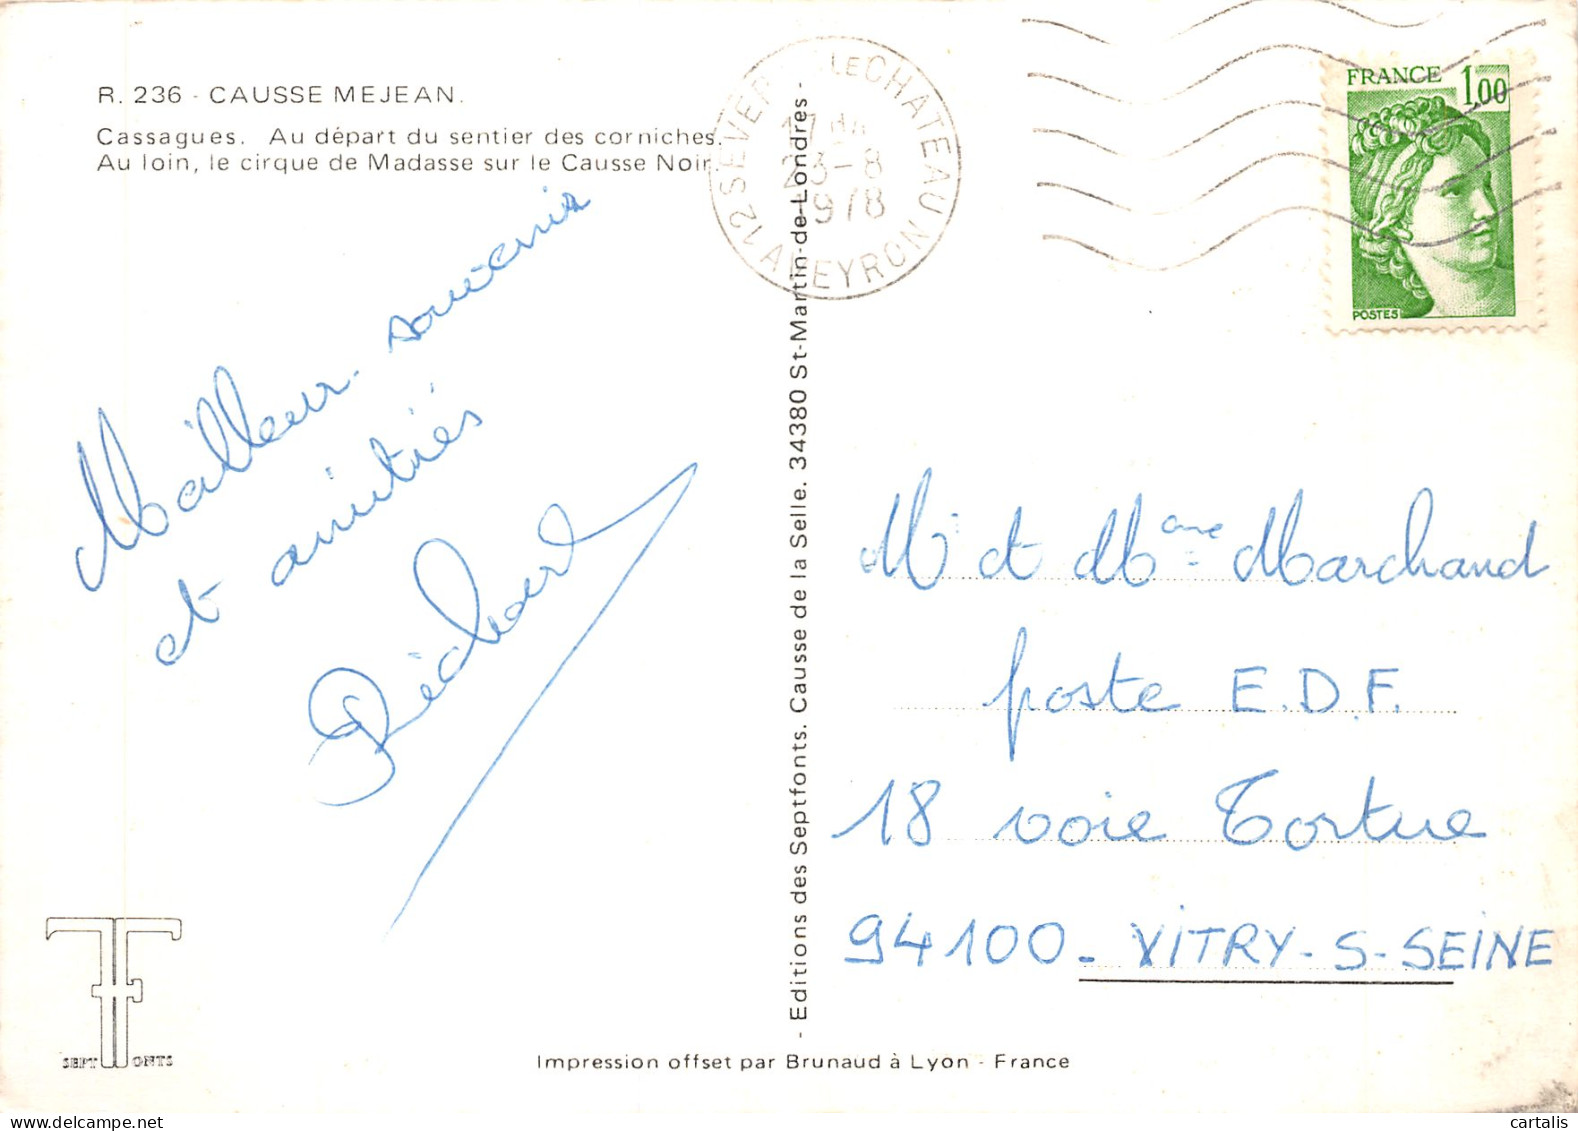 R. 236 - CAUSSE MEJEAN.
Cassagues. Au départ du sentier des corniches.
Au loin, le cirque de Madasse sur le Causse Noir.
Meilleur souvenir
et amitiés
M. et Mme Marchand
poste E.D.F.
18 voie Tortue
94100 - VITRY-S-SEINE
- Editions des Septfonts. Causse de la Selle. 34380 St-Martin-de-Londres -
12 SEVERAC LE CHATEAU
AVEYRON
17h
23-8
1978
FRANCE 1,00
POSTES
SEPT FONTS
Impression offset par Brunaud à Lyon - France
cartalis